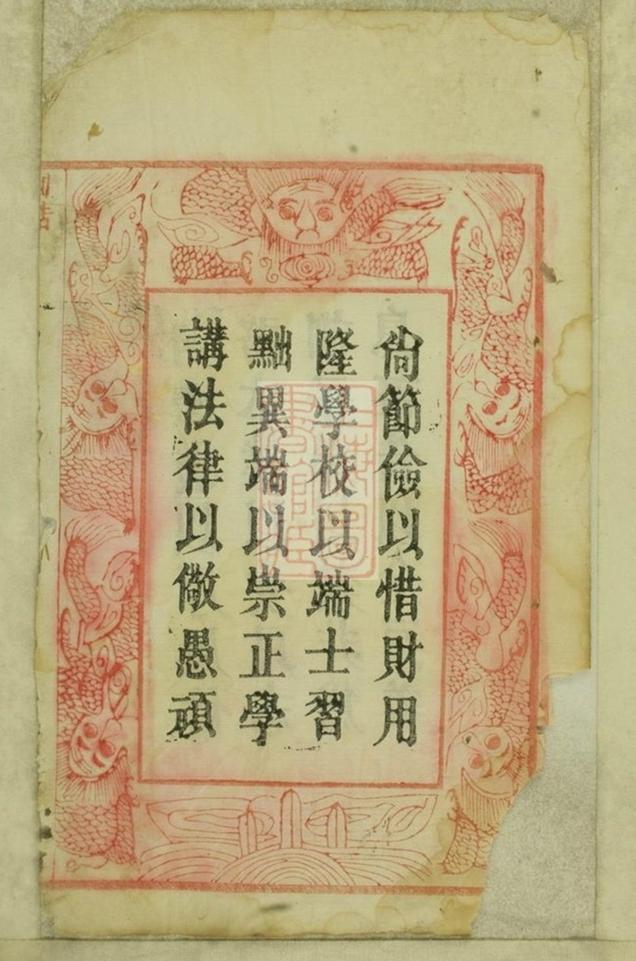 尙節儉以惜財用
隆學校以端士習
黜異端以崇正學
講法律以儆愚頑